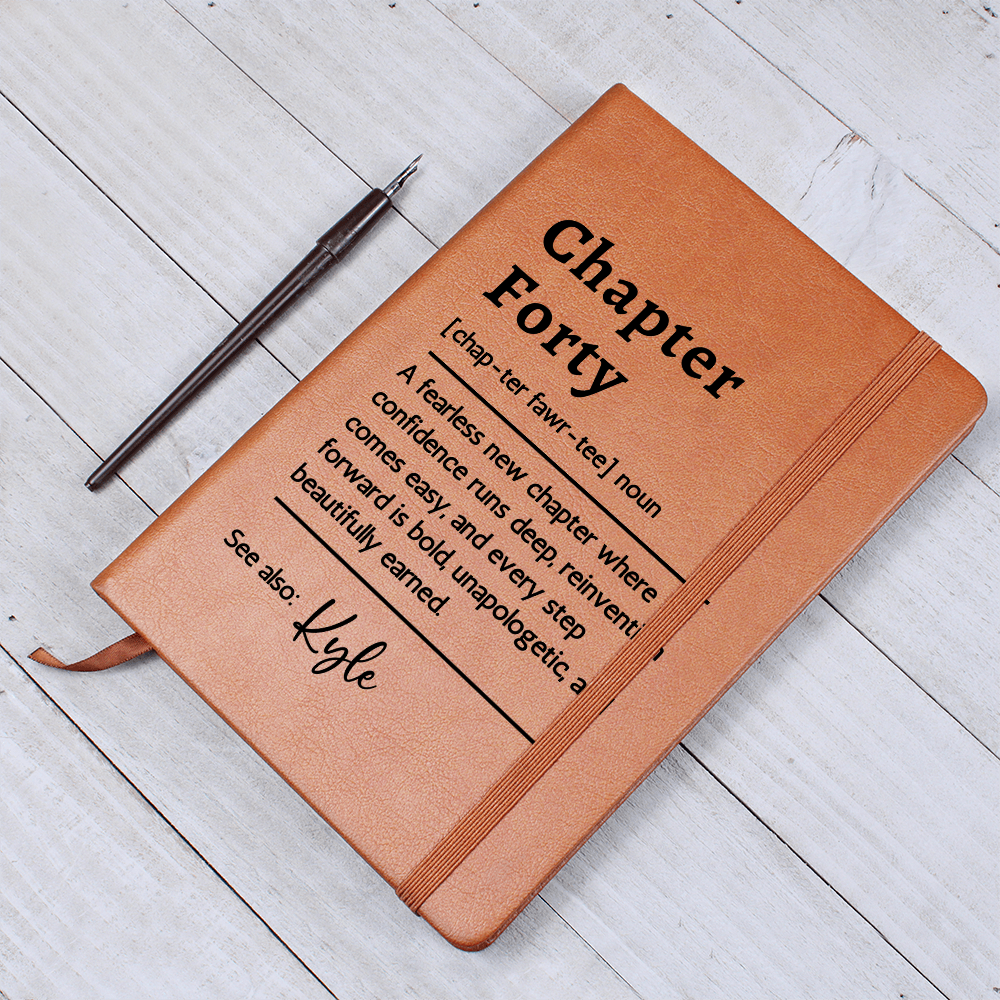 Chapter
Forty
[chap-ter fawr-tee] noun
A fearless new chapter where
confidence runs deep, reinventi
comes easy, and every step
forward is bold, unapologetic, a
beautifully earned.
See also: Kyle